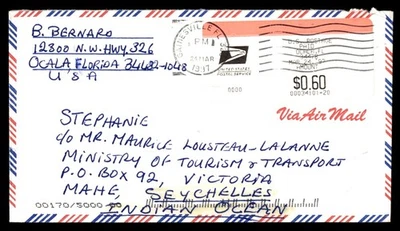 B. BERNARD
12800 N.W. HWY, 326
OCALA FLORIDA 34482-1048
U S A
GAINESVILLE FL
PM
MAR
UNITED STATES
POSTAL SERVICE
0000
U.S. POSTAGE
PAID
$0.60
00034101-20
Via Air Mail
STEPHANIE
c/o MR. MAURICE LOUSTEAU-LALANNE
MINISTRY OF TOURISM & TRANSPORT
P.O. BOX 92, VICTORIA
MAHE, SEYCHELLES
INDIAN OCEAN
00170/5000